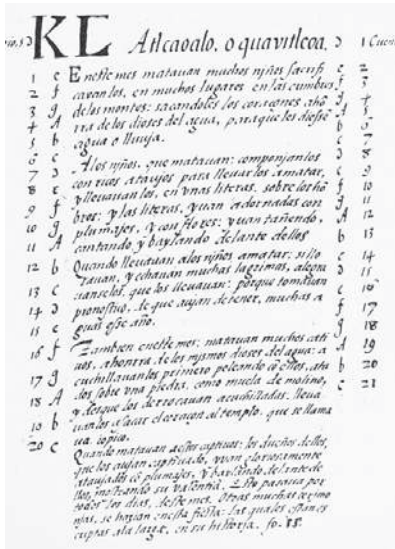 KL Atlcaoalo, o quavitleoa.
1 e Eneste mes matauan muchos niños sacrifi e 2
2 f cauanlos, en muchos lugares en las cumbres f 3
3 g de los montes: sacandoles los coraçones aho g 4
4 A rra de los dioses del agua, para que les diesse A 5
5 b agua o lluuja. b 6
6 c A los niños, que matauan: componjanlos c 7
7 d con ricos atauios para lleuarlos amatar, d 8
8 e y lleuauanlos, en vnas literas, sobre los ho e 9
9 f bros: y las literas, yuan adornadas con f 10
10 g plumajes, y con flores: yuan tañendo, g 11
11 A cantando y baylando delante dellos A 12
12 b Quando lleuauan alos niños amatar: si llo b 13
13 c rauan, y echauan muchas lagrimas, alegra c 14
14 d uanse los, que los lleuauan: porque tomauan d 15
15 e pronostico, de que aujan de tener, muchas a e 16
guas esse año. f 17
16 f Tambien eneste mes: matauan muchos cati g 18
uos, ahonrra de los mjsmos dioses del agua: a A 19
17 g cuchillauanlos primero peleando cō ellos, ata b 20
18 A dos sobre vna piedra, como muela de molino, c 21
y desque los derrocauan acuchillados. lleua
19 b uanlos a sacar el coraçon al templo. que se llama
20 c ua iopico.
Quando matauan a estos captiuos: los dueños dellos,
que los aujan captiuado, yvan gloriosamente
atauiados cō plumajes, y baylando delante de
llos, mostrando su valentia. Esto passaua por
todos los dias, deste mes. Otras muchas cerimo
njas, se hazian enesta fiesta: las quales estan es
criptas ala larga, en su historia. fo. 15.